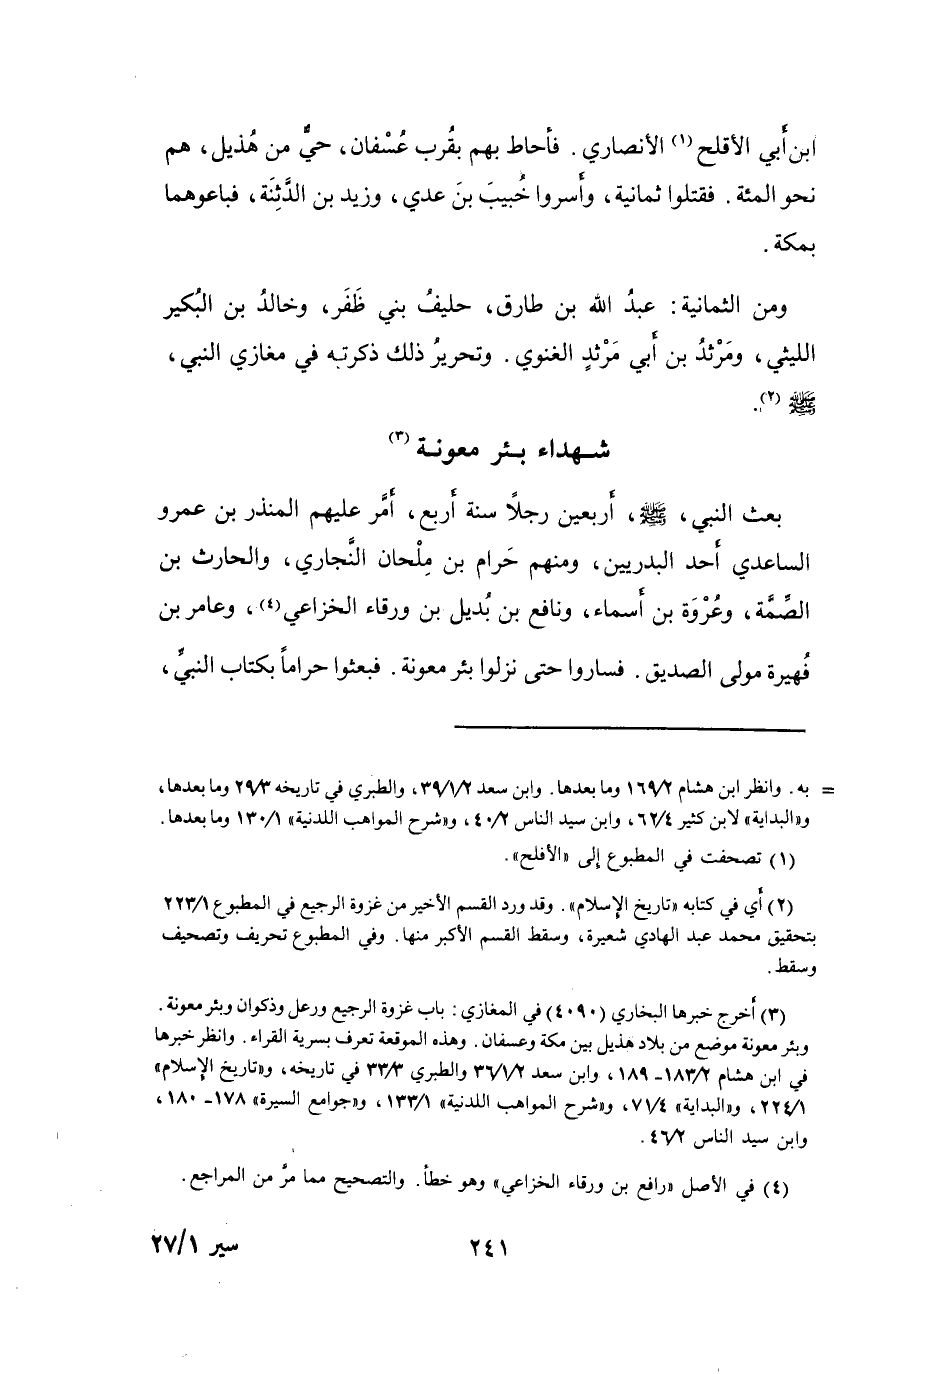 ابن أَبي الأقلح (١) الأنصاري . فأحاط بهم بقُرب عُسْفان، حيٌّ من هُذيل، هم
نحو المئة . فقتلوا ثمانية، وأَسروا خُبيبَ بنَ عدي، وزيد بن الدَّثِنَة، فباعوهما
بمكة .
ومن الثمانية: عبدُ الله بن طارق، حليفُ بني ظَفَر، وخالدُ بن البُكير
الليثي، ومَرْثدُ بن أَبي مَرْثدٍ الغنوي . وتحريرُ ذلك ذكرته في مغازي النبي،
ﷺ (٢).
شهداء بئر معونة (٣)
بعث النبي، ﷺ، أَربعين رجلاً سنة أَربع، أَمَّر عليهم المنذر بن عمرو
الساعدي أَحد البدريين، ومنهم حَرام بن مِلْحان النَّجاري، والحارث بن
الصِّمَّة، وعُرْوَة بن أَسماء، ونافع بن بُديل بن ورقاء الخزاعي(٤)، وعامر بن
فُهيرة مولى الصديق . فساروا حتى نزلوا بئر معونة . فبعثوا حراماً بكتاب النبيِّ،
= به. وانظر ابن هشام ١٦٩/٢ وما بعدها. وابن سعد ٣٩/١/٢، والطبري في تاريخه ٢٩/٣ وما بعدها،
و«البداية» لابن كثير ٦٢/٤، وابن سيد الناس ٤٠/٢، و«شرح المواهب اللدنية» ١٣٠/١ وما بعدها.
(١) تصحفت في المطبوع إلى «الأفلح».
(٢) أَي في كتابه «تاريخ الإسلام». وقد ورد القسم الأخير من غزوة الرجيع في المطبوع ٢٢٣/١
بتحقيق محمد عبد الهادي شعيرة، وسقط القسم الأكبر منها. وفي المطبوع تحريف وتصحيف
وسقط.
(٣) أَخرج خبرها البخاري (٤٠٩٠) في المغازي: باب غزوة الرجيع ورعل وذكوان وبئر معونة.
وبئر معونة موضع من بلاد هذيل بين مكة وعسفان. وهذه الموقعة تعرف بسرية القراء. وانظر خبرها
في ابن هشام ١٨٣/٢ـ ١٨٩، وابن سعد ٣٦/١/٢ والطبري ٣٣/٣ في تاريخه، و«تاريخ الإسلام»
٢٢٤/١، و«البداية» ٧١/٤، و«شرح المواهب اللدنية» ١٣٣/١، و«جوامع السيرة» ١٧٨ـ ١٨٠،
وابن سيد الناس ٤٦/٢.
(٤) في الأصل «رافع بن ورقاء الخزاعي» وهو خطأ. والتصحيح مما مرَّ من المراجع.
٢٤١
سير ٢٧/١